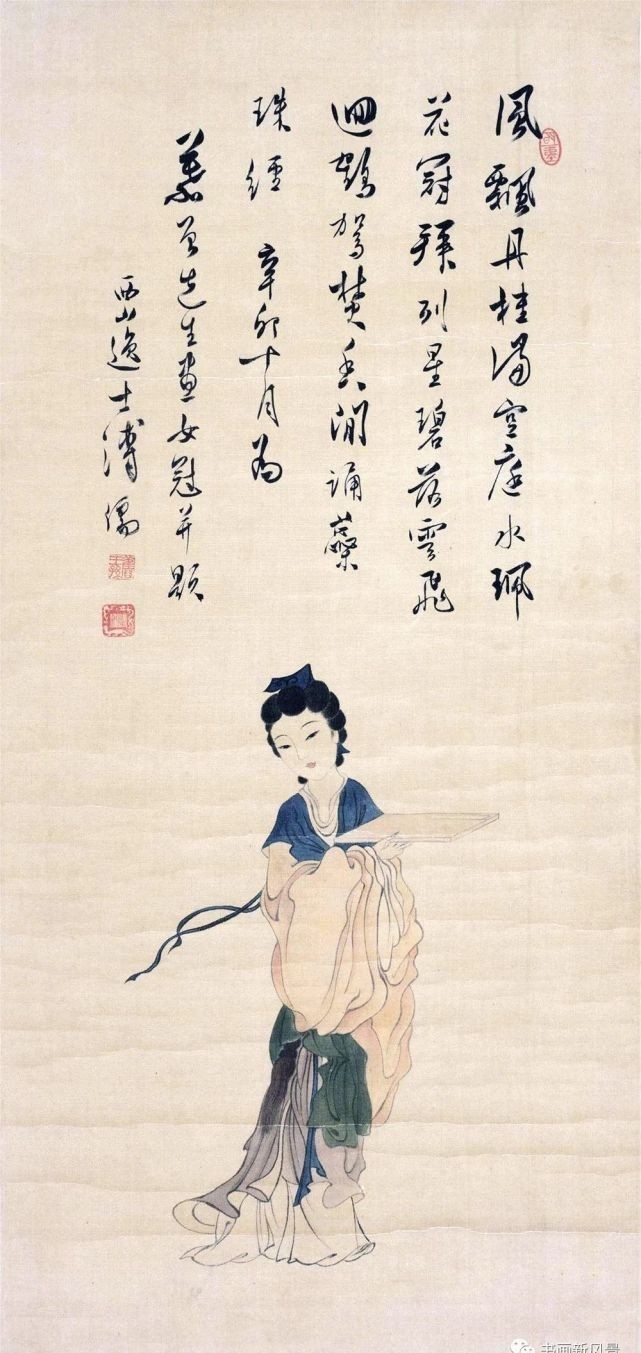 風飄丹桂滿空庭水珮
花冠拜列星碧落雲飛
迴鶴駕焚香閒誦蘂
珠經 辛卯十月為
慕先生畫女冠并題
西山逸士溥儒
书画新风景